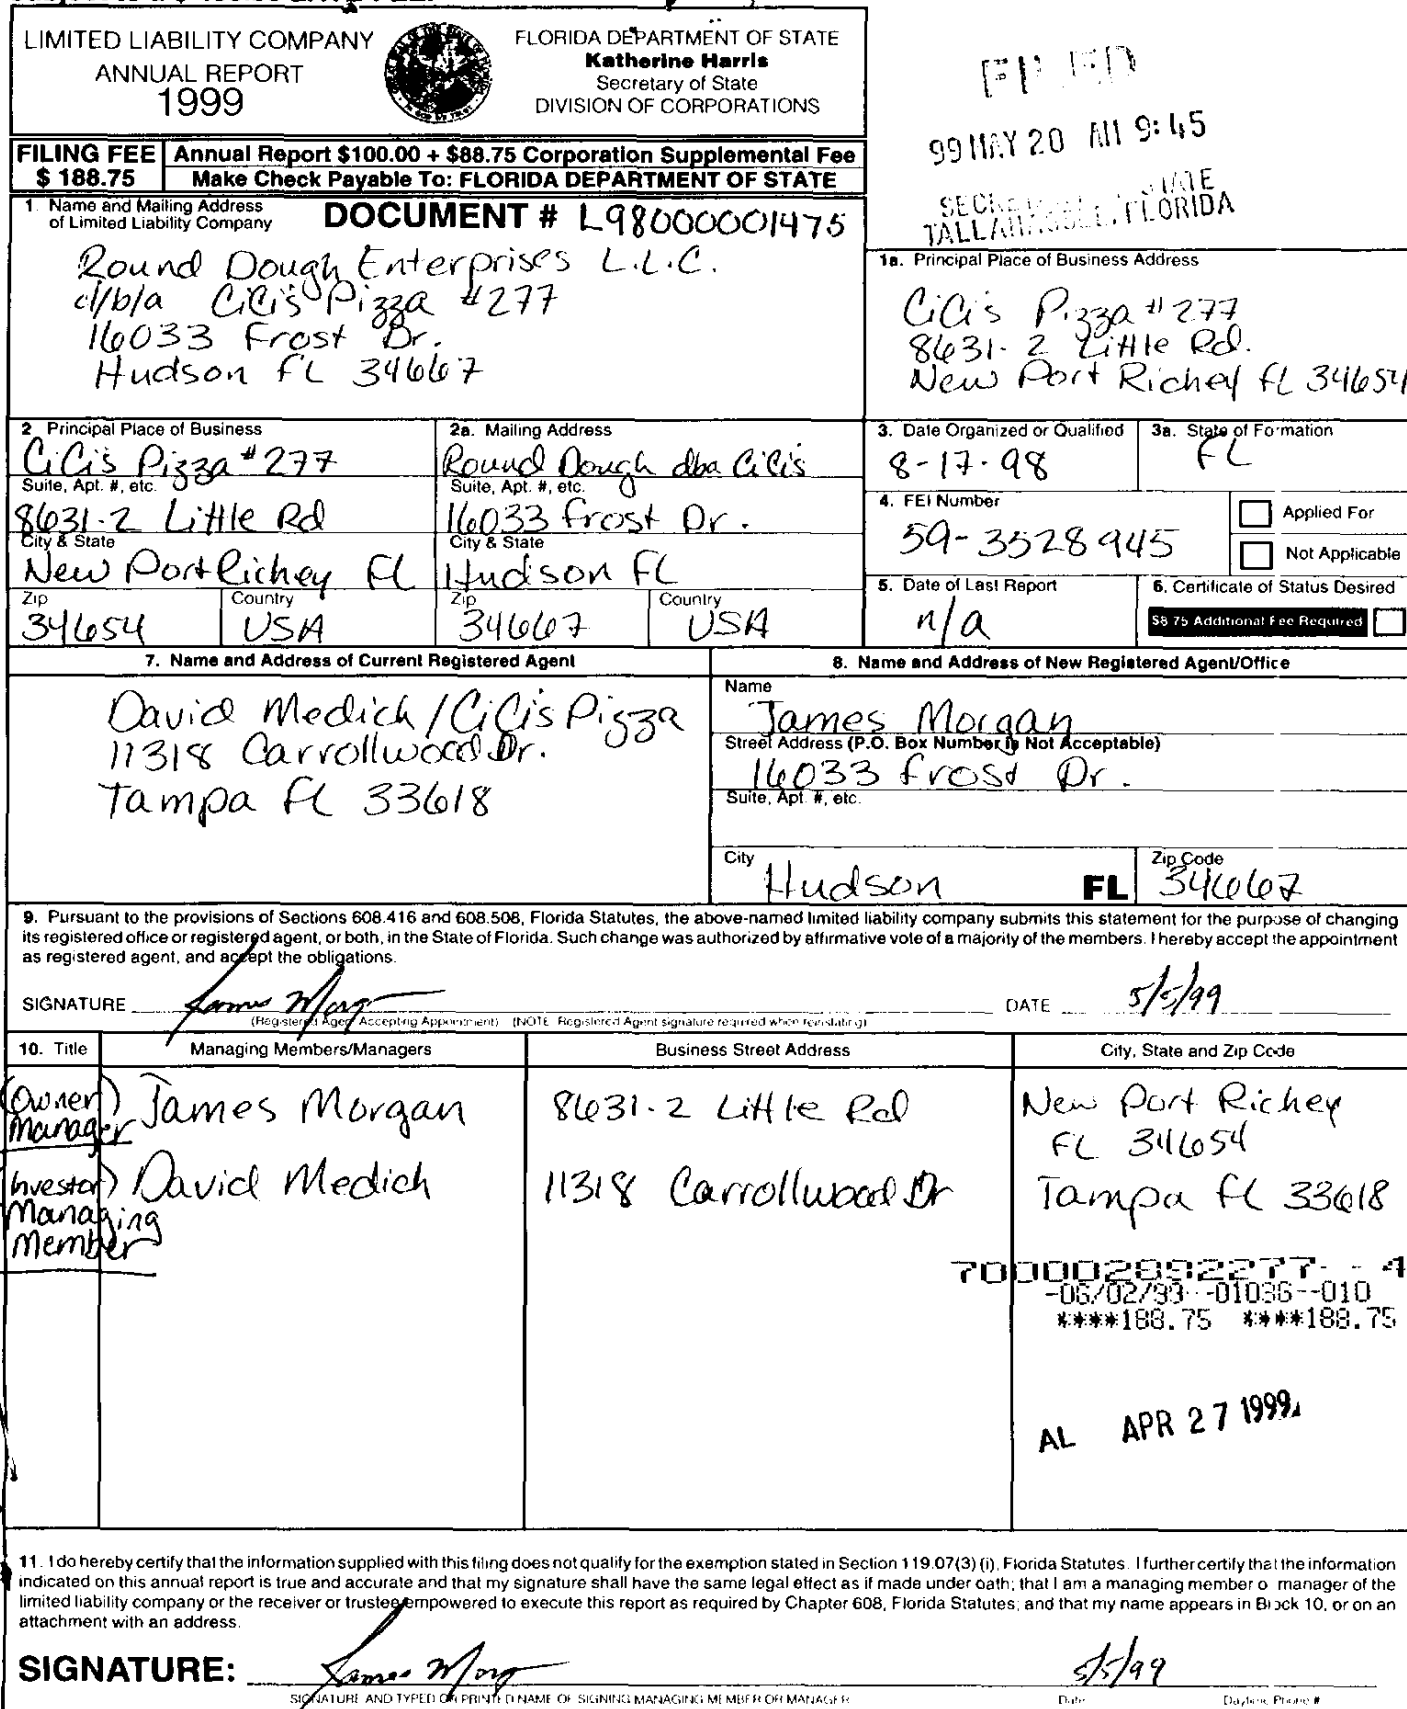 LIMITED LIABILITY COMPANY
ANNUAL REPORT
1999
FLORIDA DEPARTMENT OF STATE
Katherine Harris
Secretary of State
DIVISION OF CORPORATIONS
FILED
99 MAY 20 AM 9:45
TALLAHASSEE, FLORIDA
FILING FEE
$ 188.75
Annual Report $100.00 + $88.75 Corporation Supplemental Fee
Make Check Payable To: FLORIDA DEPARTMENT OF STATE
1. Name and Mailing Address
of Limited Liability Company
DOCUMENT # L98000001475
Round Dough Enterprises L.L.C.
d/b/a CiCi's Pizza #277
16033 Frost Dr.
Hudson FL 34667
1a. Principal Place of Business Address
CiCi's Pizza #277
8631-2 Little Rd.
New Port Richey FL 34654
2 Principal Place of Business
CiCi's Pizza #277
Suite, Apt. #, etc.
8631-2 Little Rd
City & State
New Port Richey FL
Zip
34654
Country
USA
2a. Mailing Address
Round Dough dba CiCi's
Suite, Apt. #, etc.
16033 Frost Dr.
City & State
Hudson FL
Zip
34667
Country
USA
3. Date Organized or Qualified
8-17-98
3a. State of Formation
FL
4. FEI Number
59-3528945
Applied For
Not Applicable
5. Date of Last Report
n/a
6. Certificate of Status Desired
$8.75 Additional Fee Required
7. Name and Address of Current Registered Agent
David Medich/CiCi's Pizza
11318 Carrollwood Dr.
Tampa FL 33618
8. Name and Address of New Registered Agent/Office
Name
James Morgan
Street Address (P.O. Box Number is Not Acceptable)
16033 Frost Dr.
Suite, Apt. #, etc.
City
Hudson
FL
Zip Code
34667
9. Pursuant to the provisions of Sections 608.416 and 608.508, Florida Statutes, the above-named limited liability company submits this statement for the purpose of changing
its registered office or registered agent, or both, in the State of Florida. Such change was authorized by affirmative vote of a majority of the members. I hereby accept the appointment
as registered agent, and accept the obligations.
SIGNATURE James Morgan DATE 5/5/99
(Registered Agent Accepting Appointment) (NOTE Registered Agent signature required when reinstating)
10. Title
Managing Members/Managers
Business Street Address
City, State and Zip Code
(Owner) Manager
James Morgan
8631-2 Little Rd
New Port Richey
FL 34654
(Investor) Managing Member
David Medich
11318 Carrollwood Dr
Tampa FL 33618
700002892277--4
-06/02/99--01036--010
****188.75 ****188.75
AL APR 27 1999
11. I do hereby certify that the information supplied with this filing does not qualify for the exemption stated in Section 119.07(3) (i), Florida Statutes. I further certify that the information
indicated on this annual report is true and accurate and that my signature shall have the same legal effect as if made under oath; that I am a managing member o manager of the
limited liability company or the receiver or trustee empowered to execute this report as required by Chapter 608, Florida Statutes; and that my name appears in Block 10, or on an
attachment with an address.
SIGNATURE: James Morgan 5/5/99
SIGNATURE AND TYPED OR PRINTED NAME OF SIGNING MANAGING MEMBER OR MANAGER
Date
Daytime Phone #